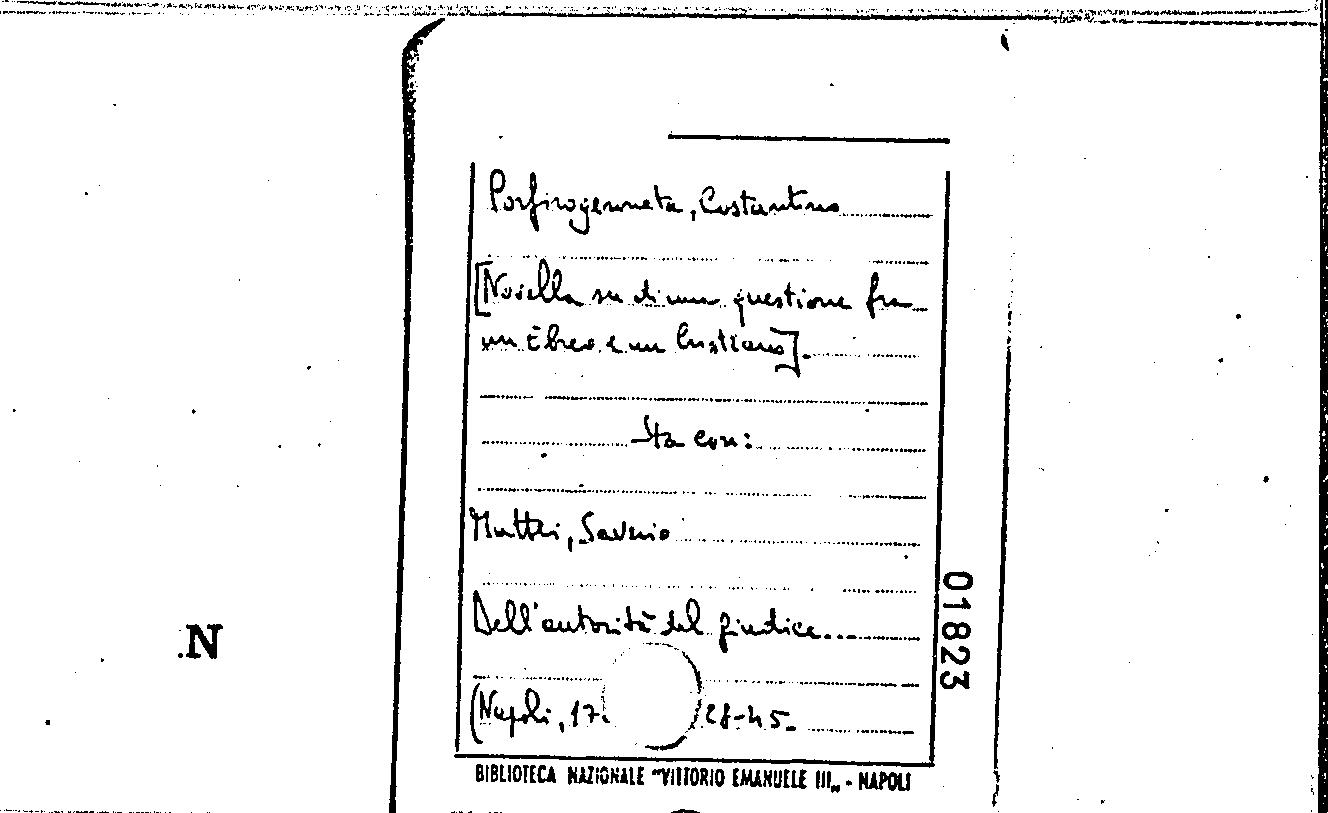 Porfirogenneta, Costantino
[Novella su di una questione fra
un Ebreo e un Cristiano].
Sta con:
Mattei, Saverio
Dell'autorità del giudice...
(Napoli, 17. 28-45.
BIBLIOTECA NAZIONALE "VITTORIO EMANUELE III„ - NAPOLI
01823
N